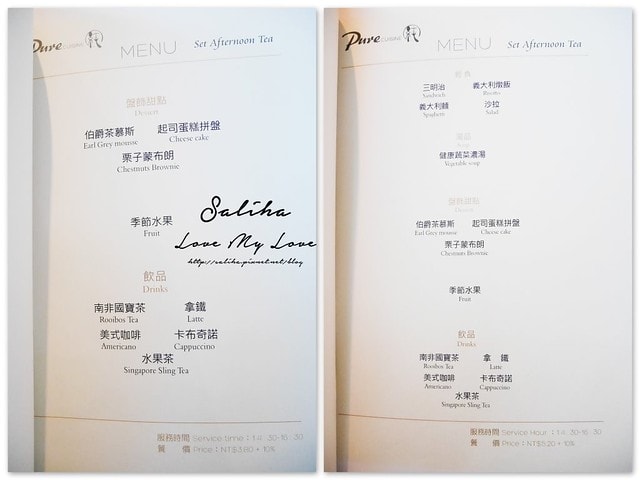 Pure CUISINE
MENU Set Afternoon Tea
盤飾甜點
Dessert
伯爵茶慕斯 起司蛋糕拼盤
Earl Grey mousse Cheese cake
栗子蒙布朗
Chestnuts Brownie
季節水果
Fruit
Saliha
Love My Love
http://saliha.pixnet.net/blog
飲品
Drinks
南非國寶茶 拿鐵
Rooibos Tea Latte
美式咖啡 卡布奇諾
Americano Cappuccino
水果茶
Singapore Sling Tea
服務時間 Service time : 14 : 30-16 : 30
餐 價 Price : NT$ + 10%
Pure CUISINE
MENU Set Afternoon Tea
三明治 義大利燉飯
Sandwich Risotto
義大利麵 沙拉
Spaghetti Salad
健康蔬菜濃湯
Vegetable soup
盤飾甜點
Dessert
伯爵茶慕斯 起司蛋糕拼盤
Earl Grey mousse Cheese cake
栗子蒙布朗
Chestnuts Brownie
季節水果
Fruit
飲品
Drinks
南非國寶茶 拿 鐵
Rooibos Tea Latte
美式咖啡 卡布奇諾
Americano Cappuccino
水果茶
Singapore Sling Tea
服務時間 Service Hour : 14 : 30-16 : 30
餐 價 Price : NT$520 + 10%